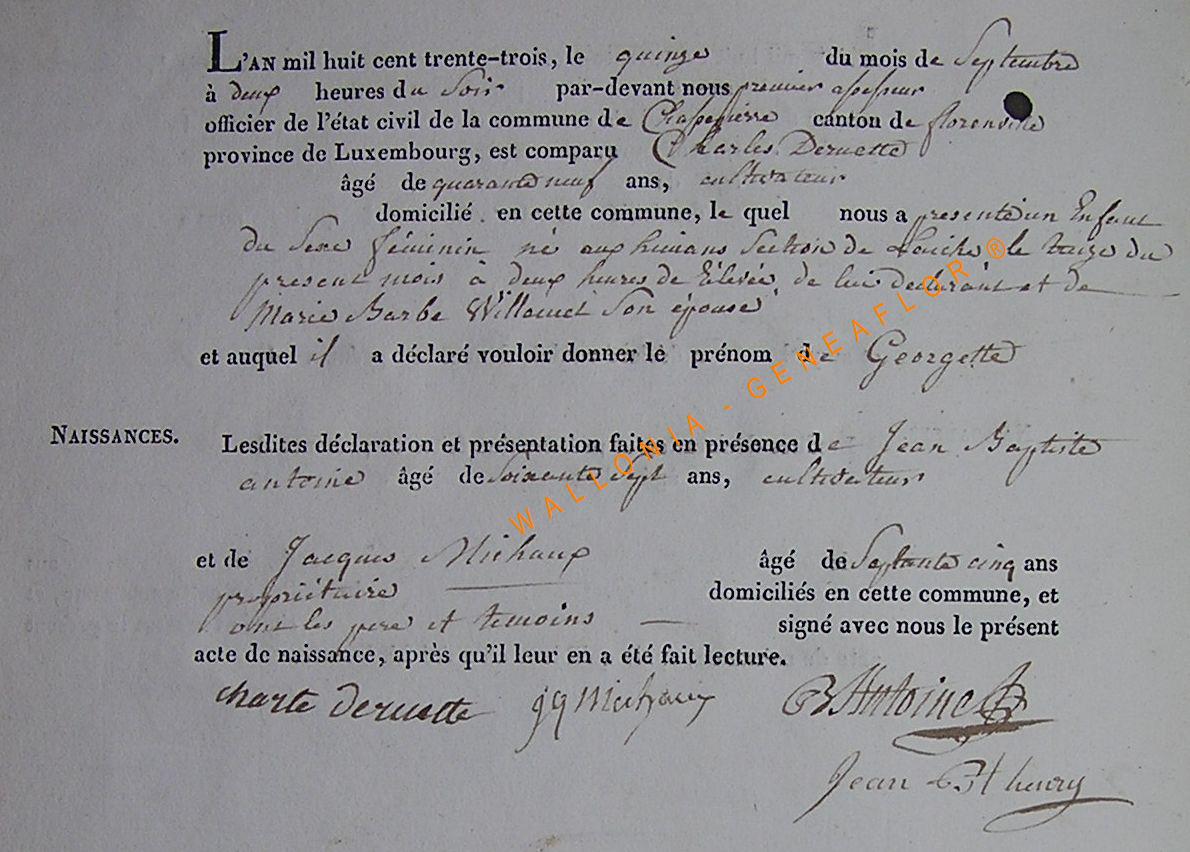 L'AN mil huit cent trente-trois, le quinze du mois de Septembre
à deux heures du Soir par-devant nous premier assesseur
officier de l'état civil de la commune de Chassepierre canton de florenville
province de Luxembourg, est comparu Charles Deruette
âgé de quarante neuf ans, cultivateur
domicilié en cette commune, le quel nous a presenté un Enfant
du Sexe féminin né aux hurans Section de Laiche le treize du
present mois à deux heures de rélevée, de lui déclarant et de
Marie Barbe Willemet Son épouse
et auquel il a déclaré vouloir donner le prénom de Georgette
NAISSANCES.
Lesdites déclaration et présentation faites en présence de Jean Baptiste
antoine âgé de soixante sept ans, cultivateur
et de Jacques Michaux âgé de Septante cinq ans
propriétaire domiciliés en cette commune, et
ont les pere et temoins signé avec nous le présent
acte de naissance, après qu'il leur en a été fait lecture.
charle deruette jq Michaux B Antoine
Jean Bt henry
WALLONIA - GENEAFLOR ®